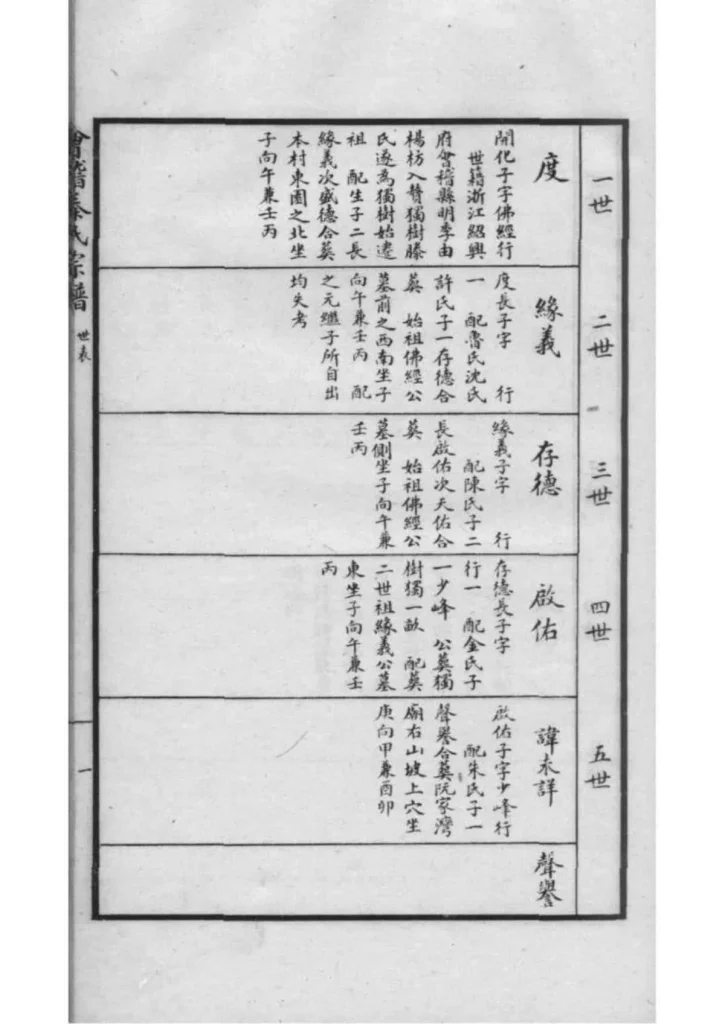 一世
二世
三世
四世
五世
度
開化子字佛經行
世籍浙江紹興
府會稽縣明季由
楊枋入贅獨樹滕
氏遂為獨樹始遷
祖　配生子二長
緣義次盛德合葬
本村東園之北坐
子向午兼壬丙
緣義
度長子字　行
一　配魯氏沈氏
許氏子一存德合
葬　始祖佛經公
墓前之西南坐子
向午兼壬丙　配
之元繼子所自出
均失考
存德
緣義子字　行
配陳氏子二
長啟佑次天佑合
葬　始祖佛經公
墓側坐子向午兼
壬丙
啟佑
存德長子字
行一　配金氏子
一少峰　公葬獨
樹獨一畝　配葬
二世祖緣義公墓
東坐子向午兼壬
丙
諱未詳
啟佑子字少峰行
配朱氏子一
聲譽合葬阮家灣
廟右山坡上穴坐
庚向甲兼酉卯
聲譽
會稽秦氏宗譜
世表
一